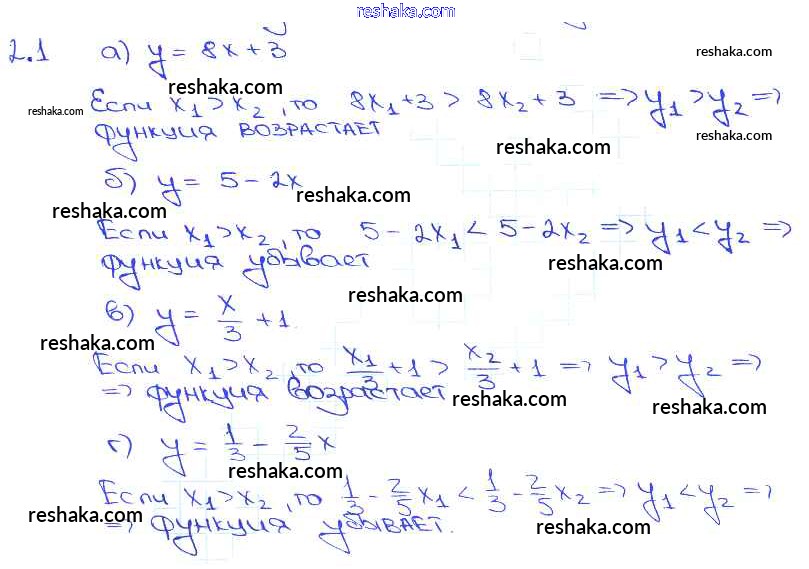 reshaka.com
2.1 а) y = 8x + 3
reshaka.com
reshaka.com
Если x₁ > x₂, то 8x₁ + 3 > 8x₂ + 3 => y₁ > y₂ =>
reshaka.com
функция ВОЗРАСТАЕТ
reshaka.com
reshaka.com
б) y = 5 - 2x
reshaka.com
reshaka.com
Если x₁ > x₂, то 5 - 2x₁ < 5 - 2x₂ => y₁ < y₂ =>
функция убывает
reshaka.com
reshaka.com
в) y = x/3 + 1
reshaka.com
Если x₁ > x₂, то x₁/3 + 1 > x₂/3 + 1 => y₁ > y₂ =>
=> функция возрастает
reshaka.com
reshaka.com
г) y = 1/3 - 2/5 x
reshaka.com
Если x₁ > x₂, то 1/3 - 2/5 x₁ < 1/3 - 2/5 x₂ => y₁ < y₂ =>
reshaka.com
=> функция убывАЕТ.
reshaka.com